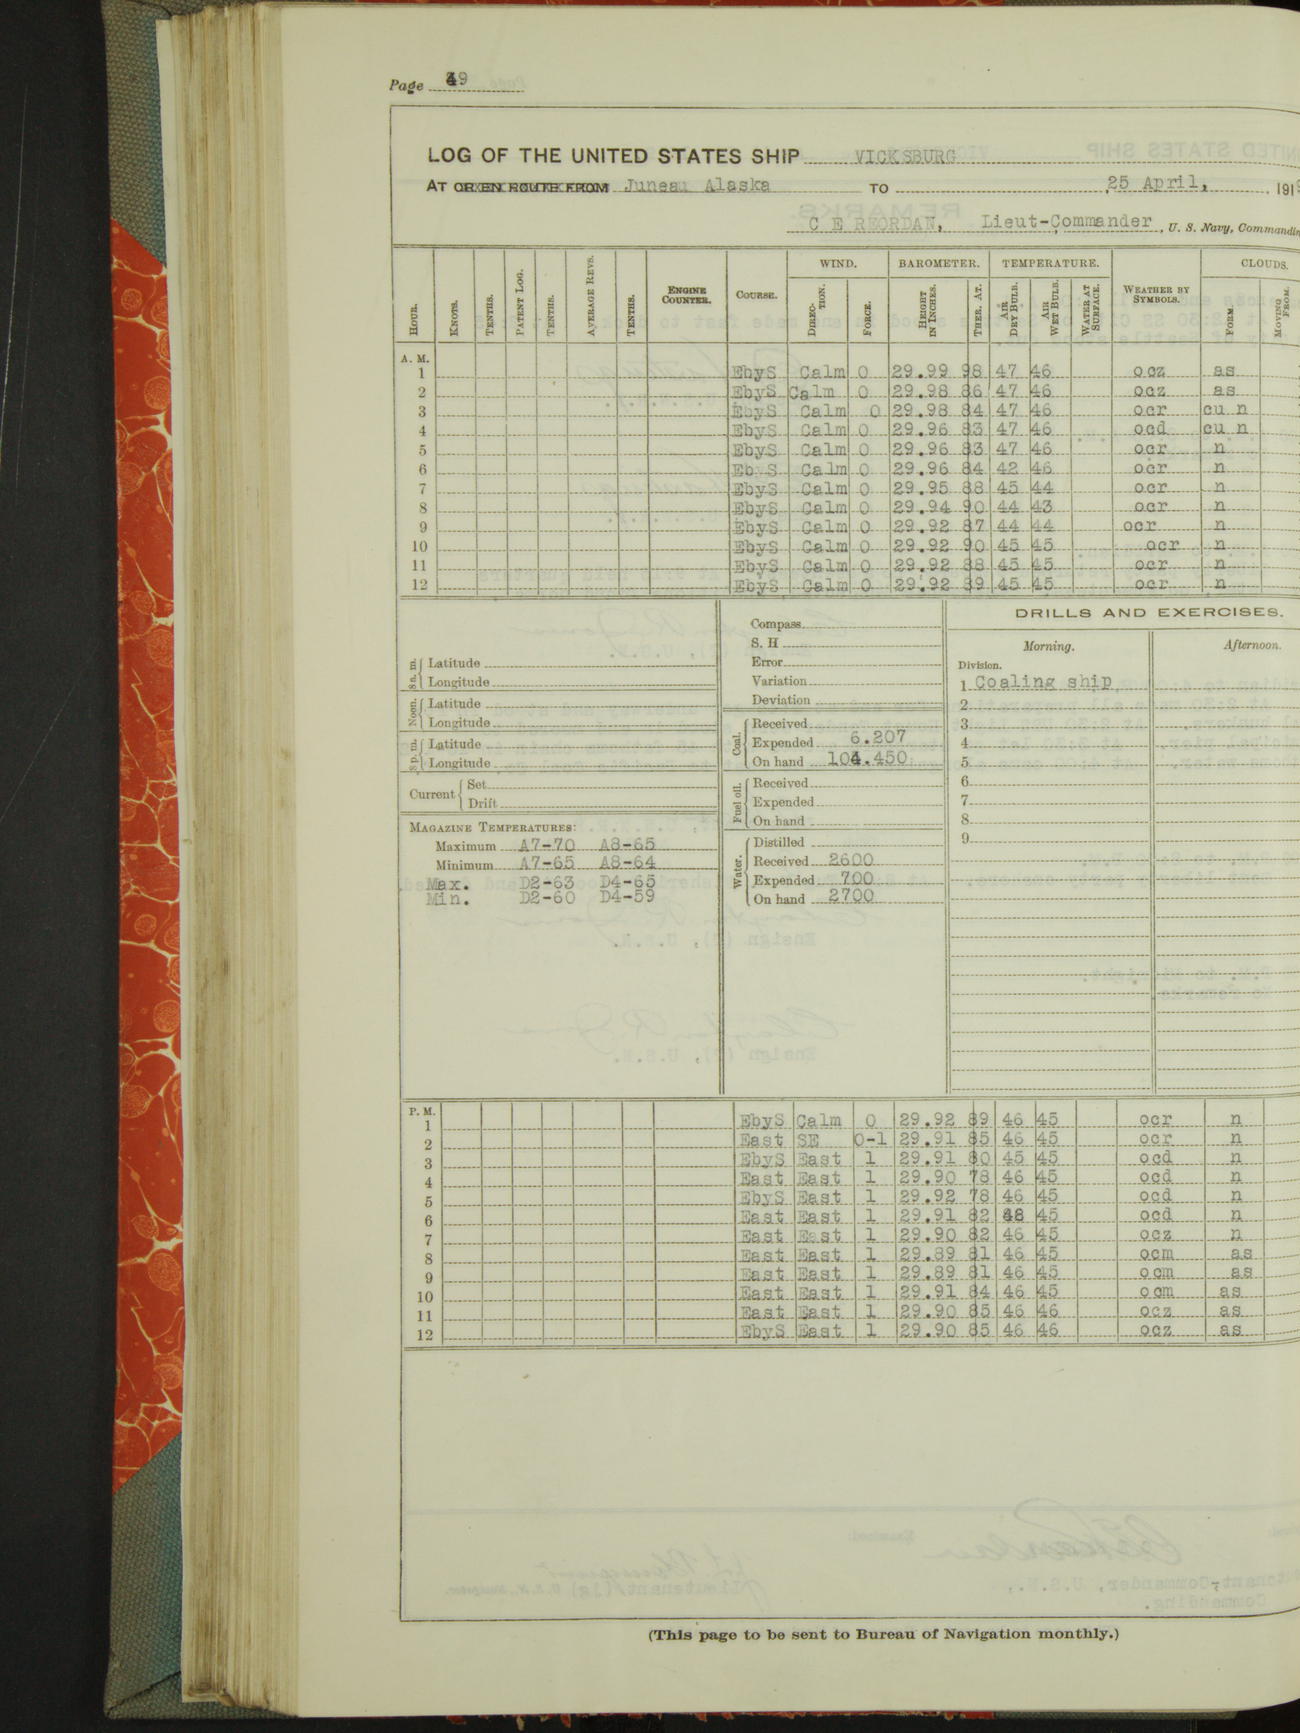 Page 49
LOG OF THE UNITED STATES SHIP VICKSBURG
AT OR EN ROUTE FROM Juneau Alaska TO 25 April, 191
C E REORDAN, Lieut-Commander, U. S. Navy, Commandin
WIND. BAROMETER. TEMPERATURE. CLOUDS.
HOUR. KNOTS. TENTHS. PATENT LOG. TENTHS. AVERAGE REVS. TENTHS. ENGINE COUNTER. COURSE. DIREC-TION. FORCE. HEIGHT IN INCHES. THER. AT. AIR DRY BULB. AIR WET BULB. WATER AT SURFACE. WEATHER BY SYMBOLS. FORM MOVING FROM.
A. M.
1 EbyS Calm 0 29.99 98 47 46 ocz as
2 EbyS Calm 0 29.98 86 47 46 ocz as
3 EbyS Calm 0 29.98 84 47 46 ocr cu n
4 EbyS Calm 0 29.96 83 47 46 ocd cu n
5 EbyS Calm 0 29.96 83 47 46 ocr n
6 EbyS Calm 0 29.96 84 42 46 ocr n
7 EbyS Calm 0 29.95 88 45 44 ocr n
8 EbyS Calm 0 29.94 90 44 43 ocr n
9 EbyS Calm 0 29.92 87 44 44 ocr n
10 EbyS Calm 0 29.92 90 45 45 ocr n
11 EbyS Calm 0 29.92 88 45 45 ocr n
12 EbyS Calm 0 29.92 89 45 45 ocr n
8 a. m. Latitude
Longitude
Noon. Latitude
Longitude
8 p. m. Latitude
Longitude
Current Set
Drift
MAGAZINE TEMPERATURES:
Maximum A7-70 A8-65
Minimum A7-65 A8-64
Max. D2-63 D4-65
Min. D2-60 D4-59
Compass
S. H
Error
Variation
Deviation
Coal. Received
Expended 6.207
On hand 104.450
Fuel oil. Received
Expended
On hand
Water. Distilled
Received 2600
Expended 700
On hand 2700
DRILLS AND EXERCISES.
Morning. Afternoon.
Division.
1 Coaling ship
2
3
4
5
6
7
8
9
P. M.
1 EbyS Calm 0 29.92 89 46 45 ocr n
2 East SE 0-1 29.91 85 46 45 ocr n
3 EbyS East 1 29.91 80 45 45 ocd n
4 East East 1 29.90 78 46 45 ocd n
5 EbyS East 1 29.92 78 46 45 ocd n
6 East East 1 29.91 82 48 45 ocd n
7 East East 1 29.90 82 46 45 ocz n
8 East East 1 29.89 81 46 45 ocm as
9 East East 1 29.89 81 46 45 ocm as
10 East East 1 29.91 84 46 45 ocm as
11 East East 1 29.90 85 46 46 ocz as
12 EbyS East 1 29.90 85 46 46 ocz as
(This page to be sent to Bureau of Navigation monthly.)